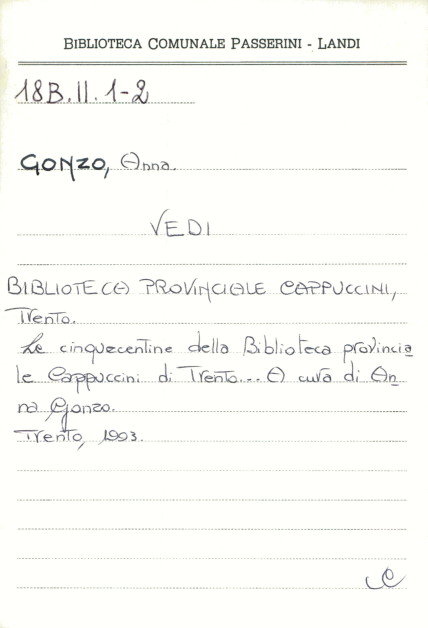 BIBLIOTECA COMUNALE PASSERINI - LANDI
18B.II.1-2
GONZO, Anna.
VEDI
BIBLIOTECA PROVINCIALE CAPPUCCINI,
Trento.
Le cinquecentine della Biblioteca provincia
le Cappuccini di Trento... A cura di An
na Gonzo.
Trento, 1993.